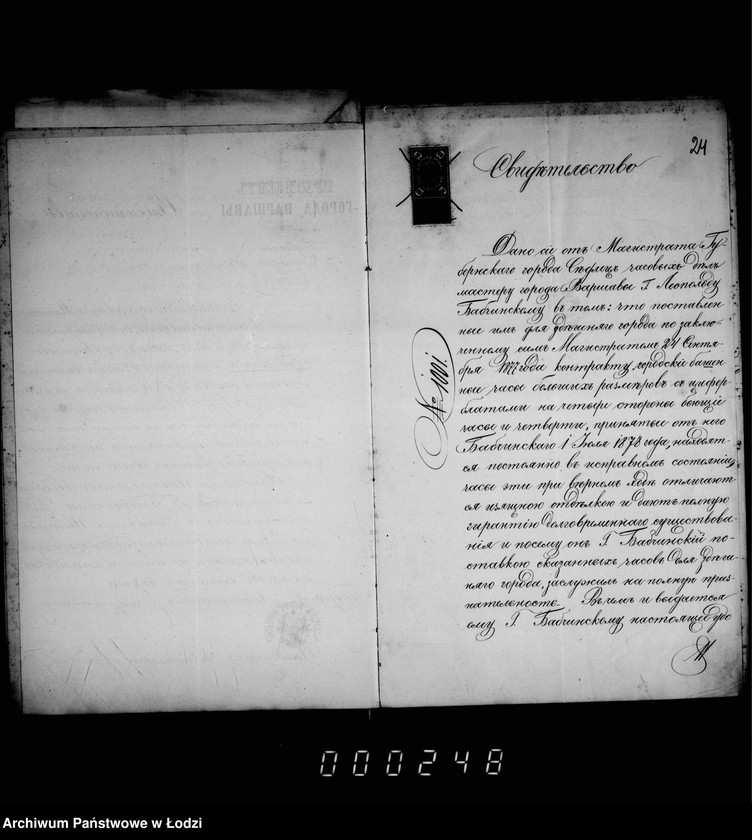 24
Свидѣтельство
Дано сіе отъ Магистрата Гу-
бернскаго города Сѣдлецъ часовыхъ дѣлъ
мастеру города Варшавы Г. Леопольду
Бабчинскому въ томъ: что поставлен-
ные имъ для здѣшняго города по заклю-
ченному симъ Магистратомъ 24 Сентя-
бря 1877 года контракту, городскіе башен-
ные часы большихъ размѣровъ съ цифер-
блатами на четыре стороны бьющіе
часы и четверти, принятые отъ него
Бабчинскаго 1 Іюля 1878 года, находят-
ся постоянно въ исправномъ состояніи,
часы эти при вѣрномъ ходѣ отличают-
ся изящною отдѣлкою и даютъ полную
гарантію долговременнаго существова-
нія и посему онъ Г. Бабчинскій по-
ставкою сказанныхъ часовъ для здѣш-
няго города, заслужилъ на полную приз-
нательность. Въ чемъ и выдается
ему Г. Бабчинскому настоящее удо
№ 1001.
ПРЕЗИДЕНТЪ
ГОРОДА ВАРШАВЫ
000248
Archiwum Państwowe w Łodzi